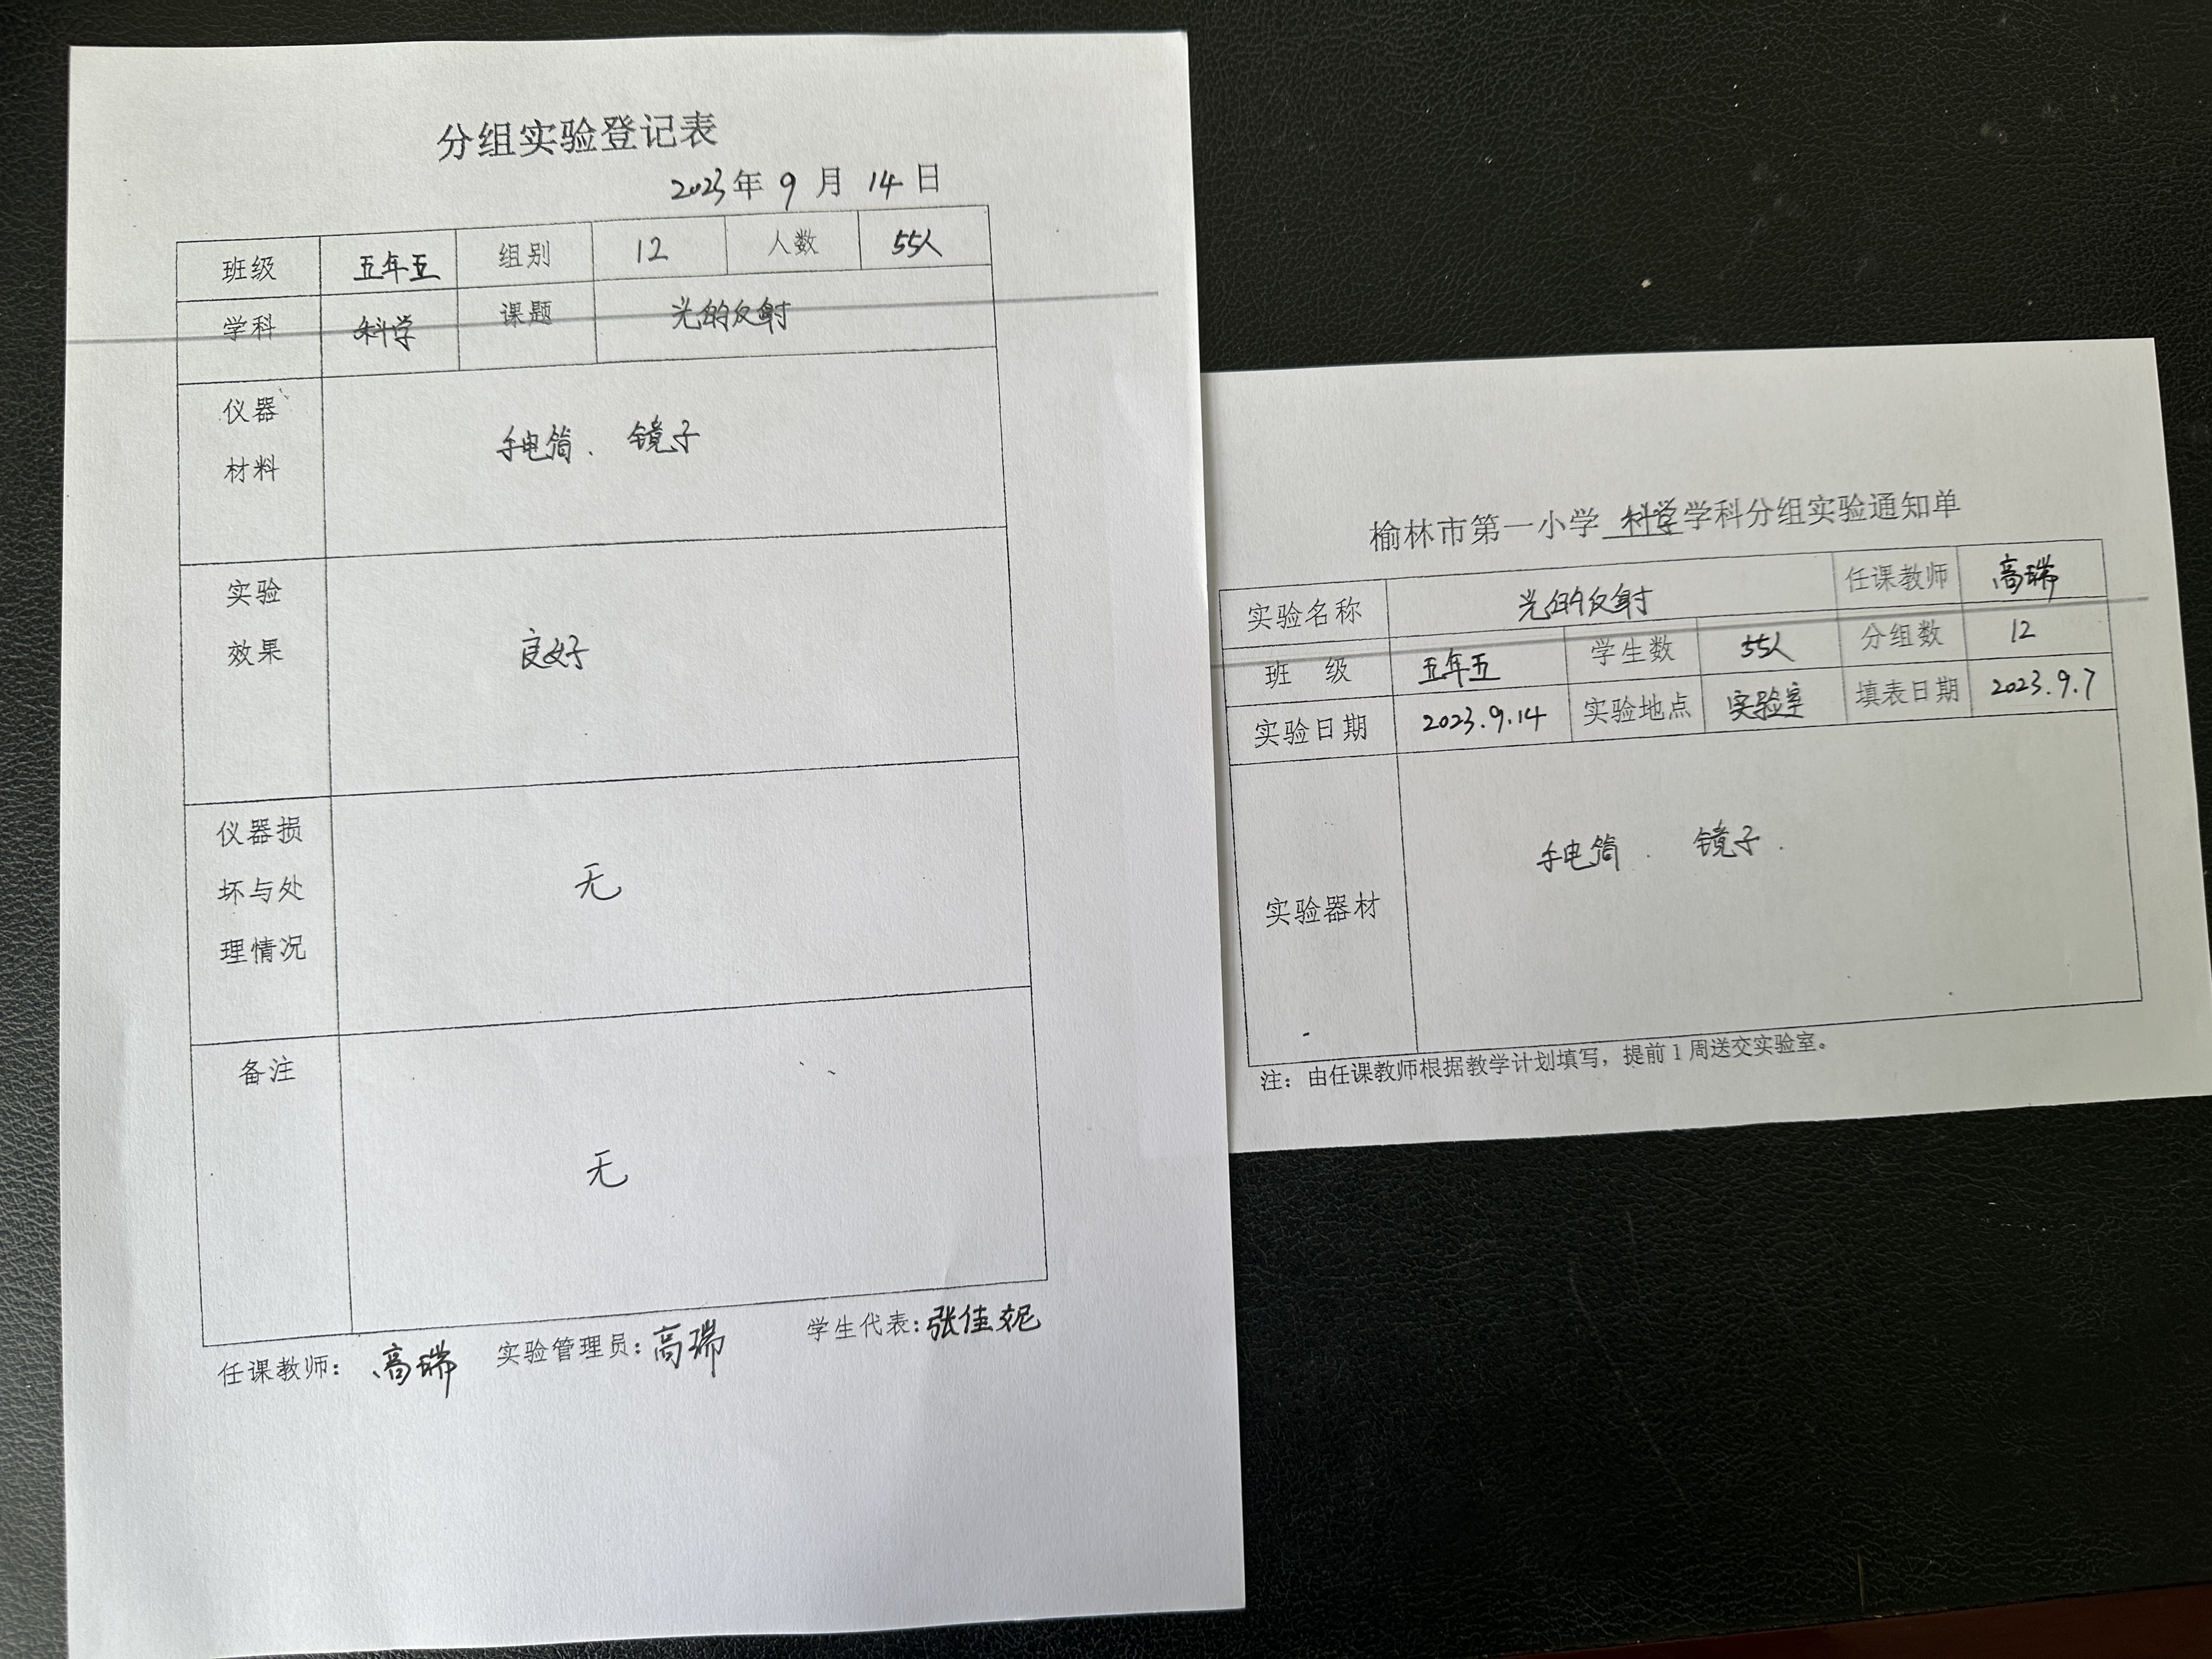 分组实验登记表
2023年 9 月 14 日
班级 五年五 组别 12 人数 55人
学科 科学 课题 光的反射
仪器
材料
手电筒、镜子
实验
效果
良好
仪器损
坏与处
理情况
无
备注
无
任课教师: 高瑞 实验管理员: 高瑞 学生代表: 张佳妮
榆林市第一小学 科学 学科分组实验通知单
实验名称 光的反射 任课教师 高瑞
班 级 五年五 学生数 55人 分组数 12
实验日期 2023.9.14 实验地点 实验室 填表日期 2023.9.7
实验器材 手电筒、镜子.
注：由任课教师根据教学计划填写，提前1周送交实验室。